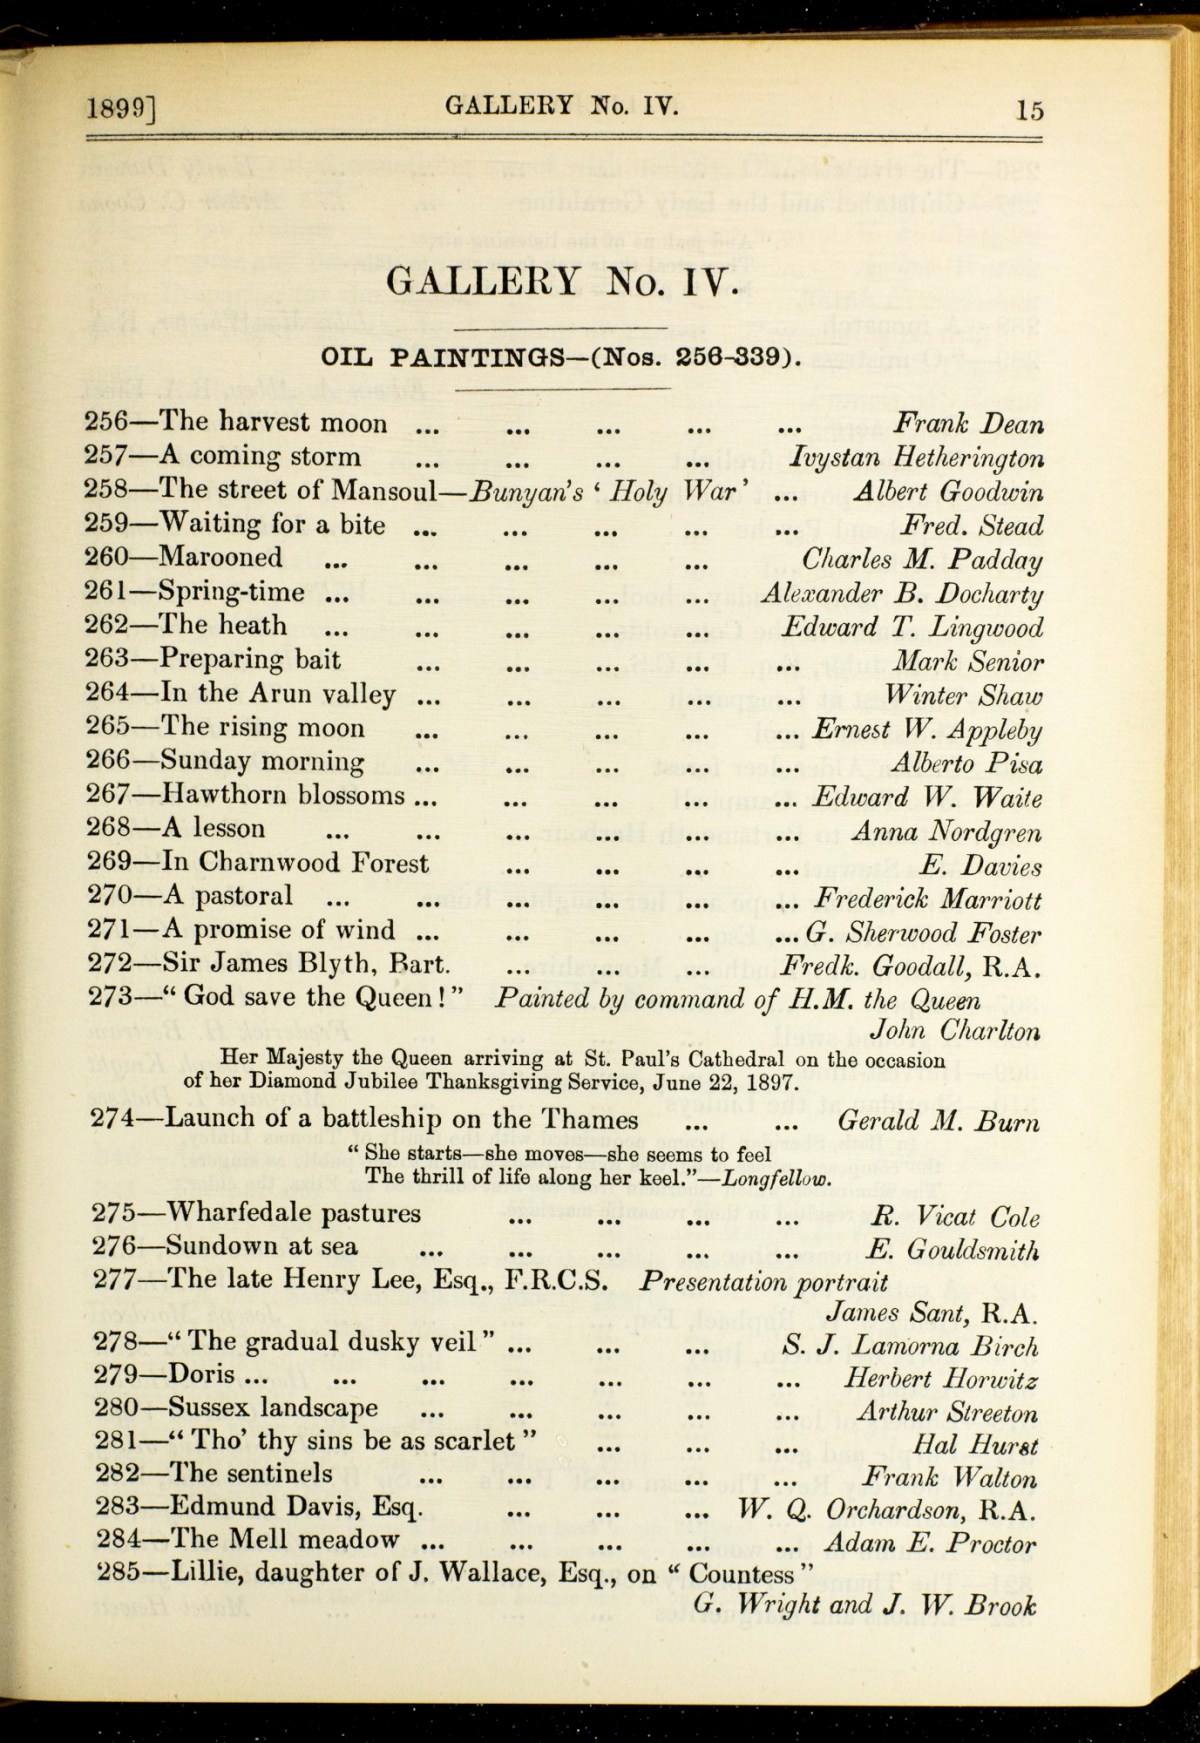 1899] GALLERY No. IV. 15
GALLERY No. IV.
OIL PAINTINGS—(Nos. 256-339).
256—The harvest moon ... ... ... ... ... Frank Dean
257—A coming storm ... ... ... ... Ivystan Hetherington
258—The street of Mansoul—Bunyan's ‘ Holy War ’ ... Albert Goodwin
259—Waiting for a bite ... ... ... ... ... Fred. Stead
260—Marooned ... ... ... ... ... Charles M. Padday
261—Spring-time ... ... ... ... ... Alexander B. Docharty
262—The heath ... ... ... ... ... Edward T. Lingwood
263—Preparing bait ... ... ... ... ... Mark Senior
264—In the Arun valley ... ... ... ... ... Winter Shaw
265—The rising moon ... ... ... ... ... Ernest W. Appleby
266—Sunday morning ... ... ... ... ... Alberto Pisa
267—Hawthorn blossoms ... ... ... ... ... Edward W. Waite
268—A lesson ... ... ... ... ... ... Anna Nordgren
269—In Charnwood Forest ... ... ... ... E. Davies
270—A pastoral ... ... ... ... ... ... Frederick Marriott
271—A promise of wind ... ... ... ... ... G. Sherwood Foster
272—Sir James Blyth, Bart. ... ... ... Fredk. Goodall, R.A.
273—“ God save the Queen ! ” Painted by command of H.M. the Queen
John Charlton
Her Majesty the Queen arriving at St. Paul's Cathedral on the occasion
of her Diamond Jubilee Thanksgiving Service, June 22, 1897.
274—Launch of a battleship on the Thames ... ... Gerald M. Burn
“ She starts—she moves—she seems to feel
The thrill of life along her keel.”—Longfellow.
275—Wharfedale pastures ... ... ... ... R. Vicat Cole
276—Sundown at sea ... ... ... ... ... E. Gouldsmith
277—The late Henry Lee, Esq., F.R.C.S. Presentation portrait
James Sant, R.A.
278—“ The gradual dusky veil ” ... ... ... S. J. Lamorna Birch
279—Doris ... ... ... ... ... ... ... Herbert Horwitz
280—Sussex landscape ... ... ... ... ... Arthur Streeton
281—“ Tho’ thy sins be as scarlet ” ... ... ... Hal Hurst
282—The sentinels ... ... ... ... ... Frank Walton
283—Edmund Davis, Esq. ... ... ... W. Q. Orchardson, R.A.
284—The Mell meadow ... ... ... ... ... Adam E. Proctor
285—Lillie, daughter of J. Wallace, Esq., on “ Countess ”
G. Wright and J. W. Brook